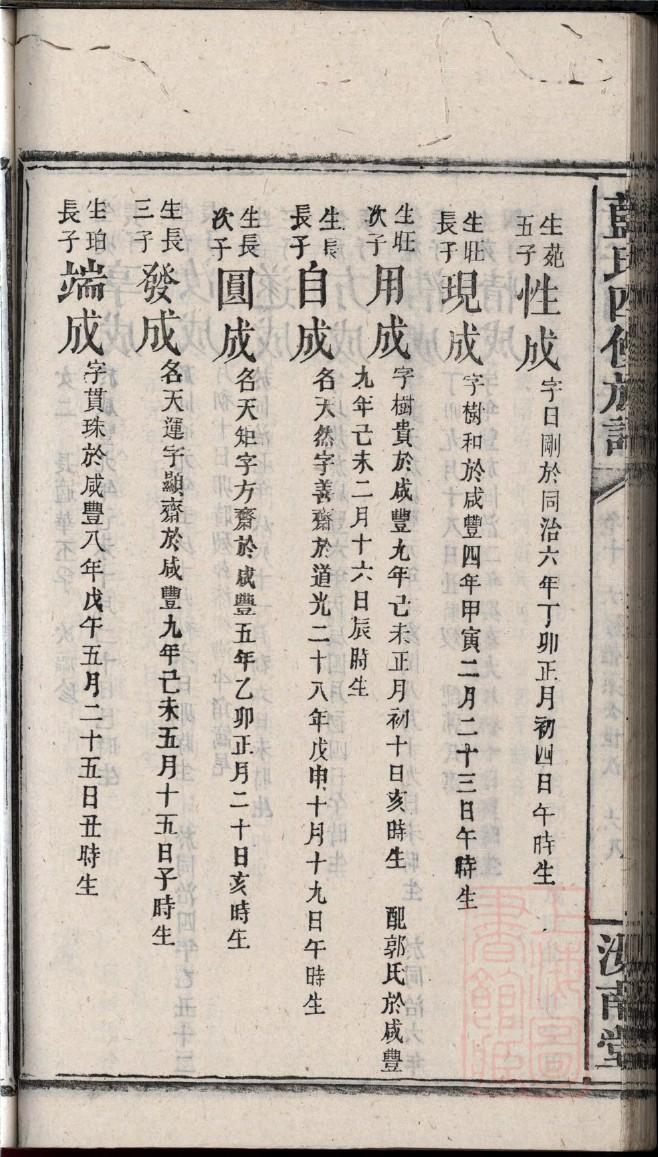 藍氏四修族譜
汝南堂
生苑五子性成字日剛於同治六年丁卯正月初四日午時生
生旺長子現成字樹和於咸豐四年甲寅二月二十三日午時生
生旺次子用成字樹貴於咸豐九年己未正月初十日亥時生 配郭氏於咸豐
九年己未二月十六日辰時生
生長長子自成名天然字善齋於道光二十八年戊申十月十九日午時生
生長次子圓成名天矩字方齋於咸豐五年乙卯正月二十日亥時生
生長三子發成名天運字顯齋於咸豐九年己未五月十五日子時生
生珀長子端成字貫珠於咸豐八年戊午五月二十五日丑時生